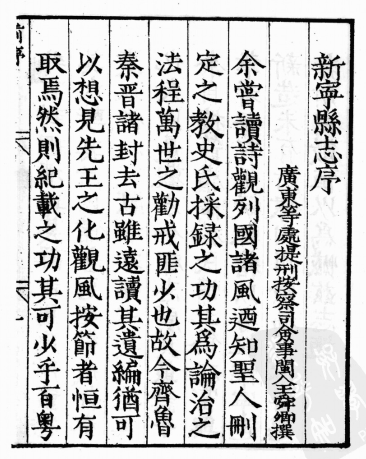 新寧縣志序
廣東等處提刑按察司僉事閩人王舜卿撰
余嘗讀詩觀列國諸風迺知聖人刪
定之教史氏採録之功其爲論治之
法程萬世之勸戒匪少也故今齊魯
秦晋諸封去古雖遠讀其遺編猶可
以想見先王之化觀風按節者恒有
取焉然則紀載之功其可少乎百粤